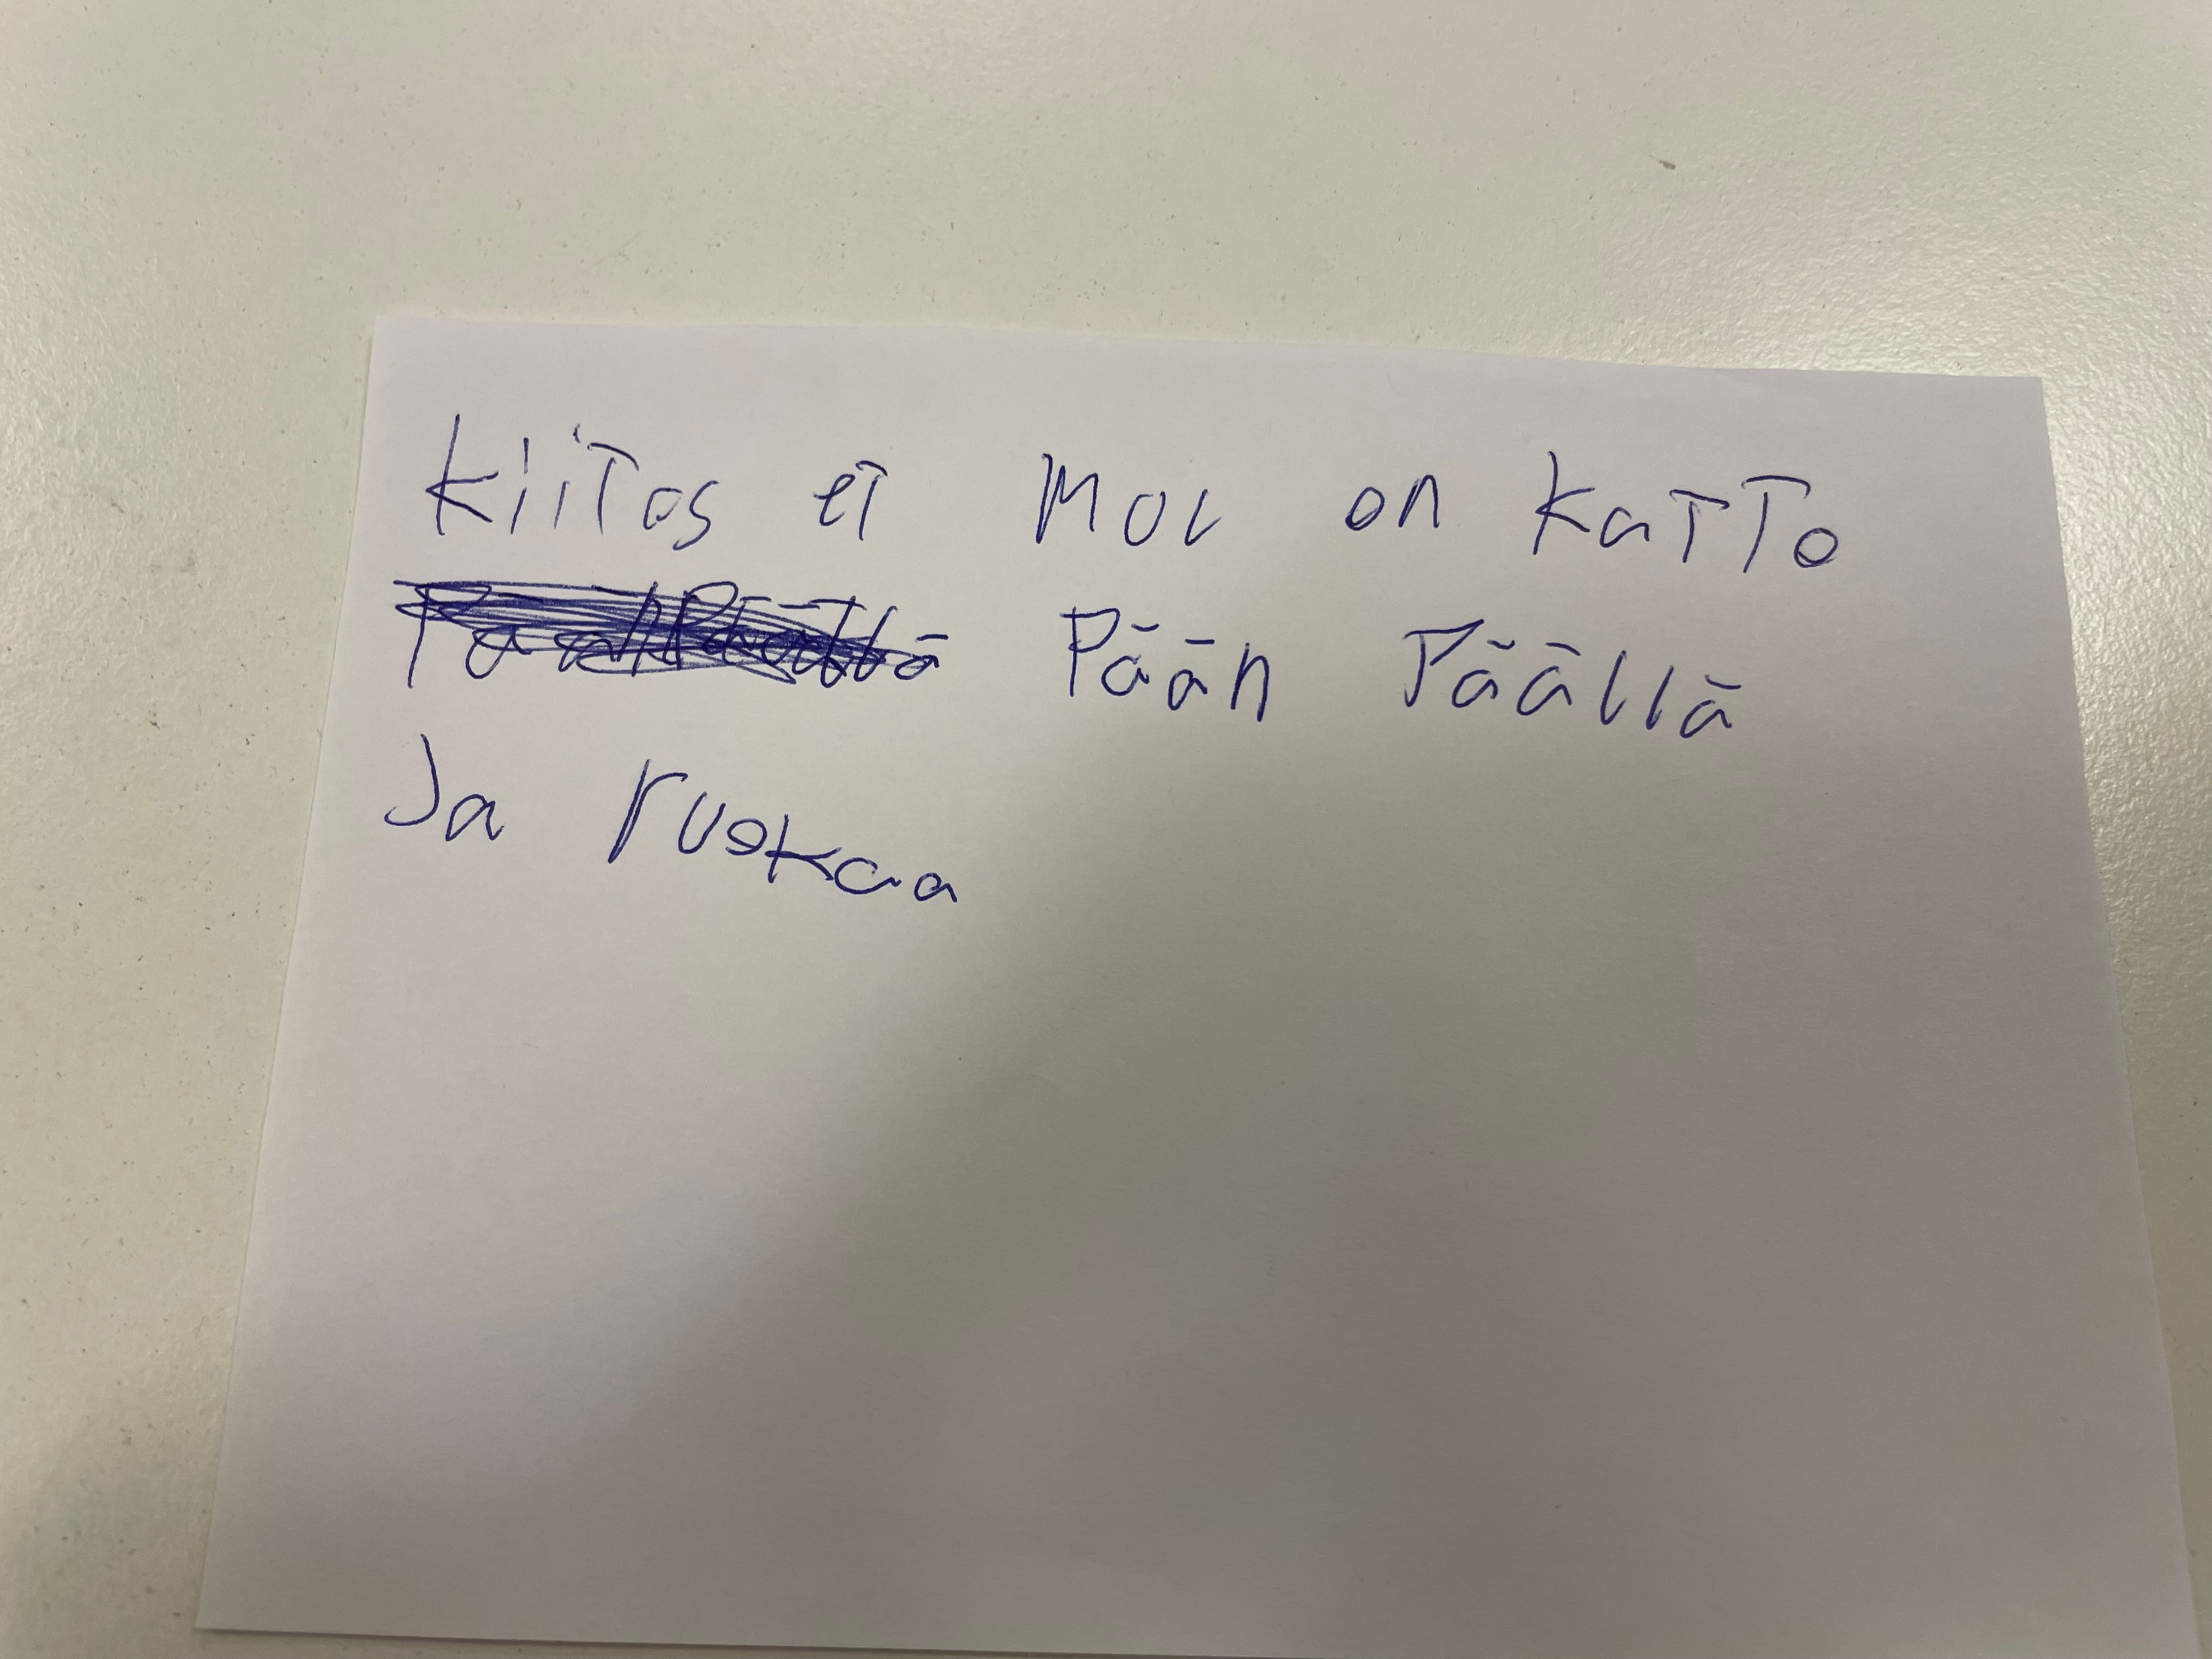 Kiitos et mol on katto
Pään Päällä
Ja ruokaa